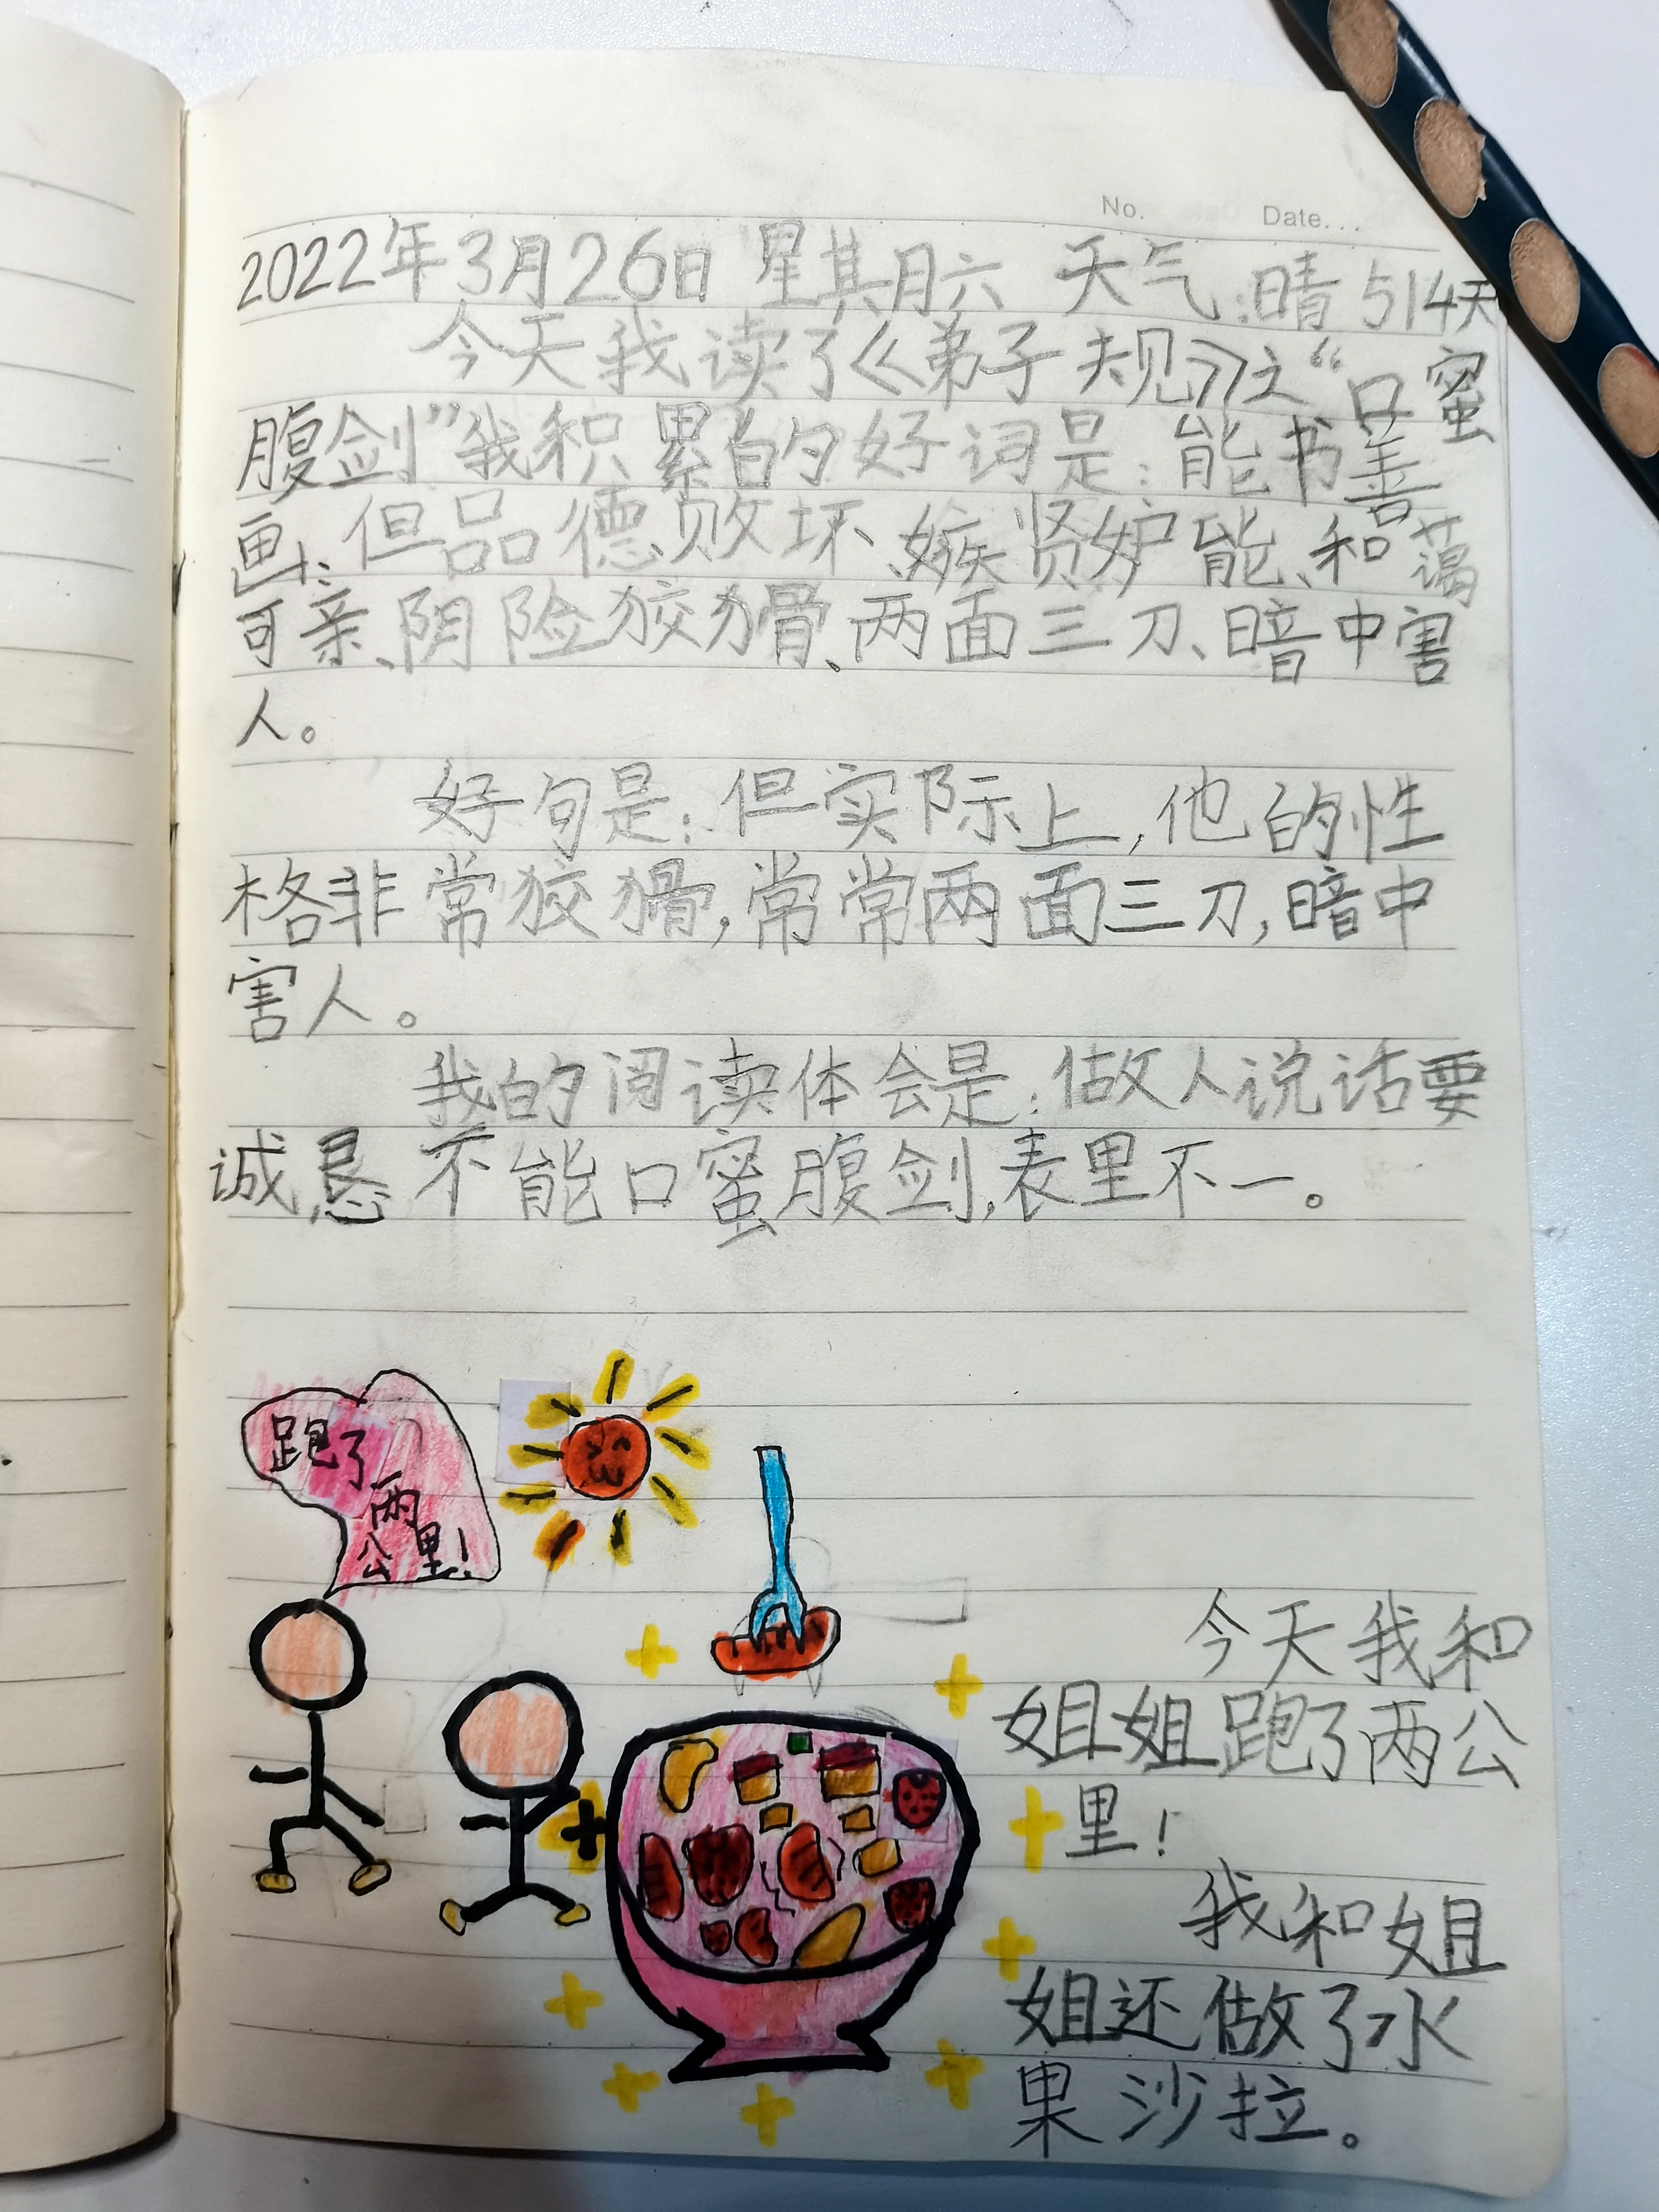 No. Date...
2022年3月26日 星期六 天气:晴 514天
今天我读了《弟子规》之“口蜜
腹剑”我积累的好词是:能书善
画、但品德败坏、嫉贤妒能、和蔼
可亲、阴险狡猾、两面三刀、暗中害
人。
好句是:但实际上,他的性
格非常狡猾,常常两面三刀,暗中
害人。
我的阅读体会是:做人说话要
诚恳 不能口蜜腹剑,表里不一。
跑了
两
公里!
今天我和
姐姐跑了两公
里!
我和姐
姐还做了水
果沙拉。